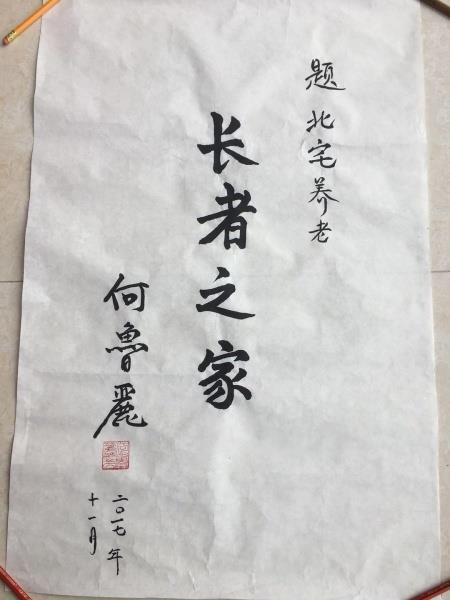 题北宅养老
长者之家
何鲁麗
二〇一七年
十一月